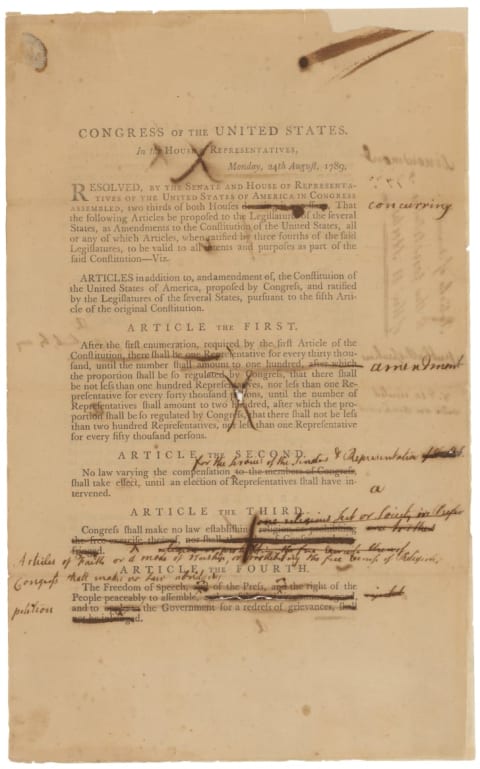 CONGRESS OF THE UNITED STATES.
In the HOUSE of REPRESENTATIVES,
Monday, 24th August, 1789,
RESOLVED, BY THE SENATE AND HOUSE OF REPRESENTA-
TIVES OF THE UNITED STATES OF AMERICA IN CONGRESS
ASSEMBLED, two thirds of both Houses That concurring
the following Articles be proposed to the Legislatures of the several
States, as Amendments to the Constitution of the United States, all
or any of which Articles, when ratified by three fourths of the said
Legislatures, to be valid to all intents and purposes as part of the
said Constitution—Viz.
ARTICLES in addition to, and amendment of, the Constitution of
the United States of America, proposed by Congress, and ratified
by the Legislatures of the several States, pursuant to the fifth Arti-
cle of the original Constitution.
ARTICLE THE FIRST.
After the first enumeration, required by the first Article of the
Constitution, there shall be one Representative for every thirty thou-
sand, until the number shall amount to one hundred, after which amendment
the proportion shall be so regulated by Congress, that there shall
be not less than one hundred Representatives, nor less than one Re-
presentative for every forty thousand persons, until the number of
Representatives shall amount to two hundred, after which the pro-
portion shall be so regulated by Congress, that there shall not be less
than two hundred Representatives, nor less than one Representative
for every fifty thousand persons.
ARTICLE THE SECOND.
for the service of the Senate & Representatives
No law varying the compensation to the members of Congress,
shall take effect, until an election of Representatives shall have in-
tervened.
a
ARTICLE THE THIRD.
one religious Sect or Society in
Congress shall make no law establishing religion
the free exercise thereof, nor shall the
Articles of Faith or a mode of Worship, or prohibiting the free exercise of Religion,
ARTICLE THE FOURTH.
Congress shall make no law abridging
The Freedom of Speech, of the Press, and the right of the
People peaceably to assemble, right
petition and to the Government for a redress of grievances, shall